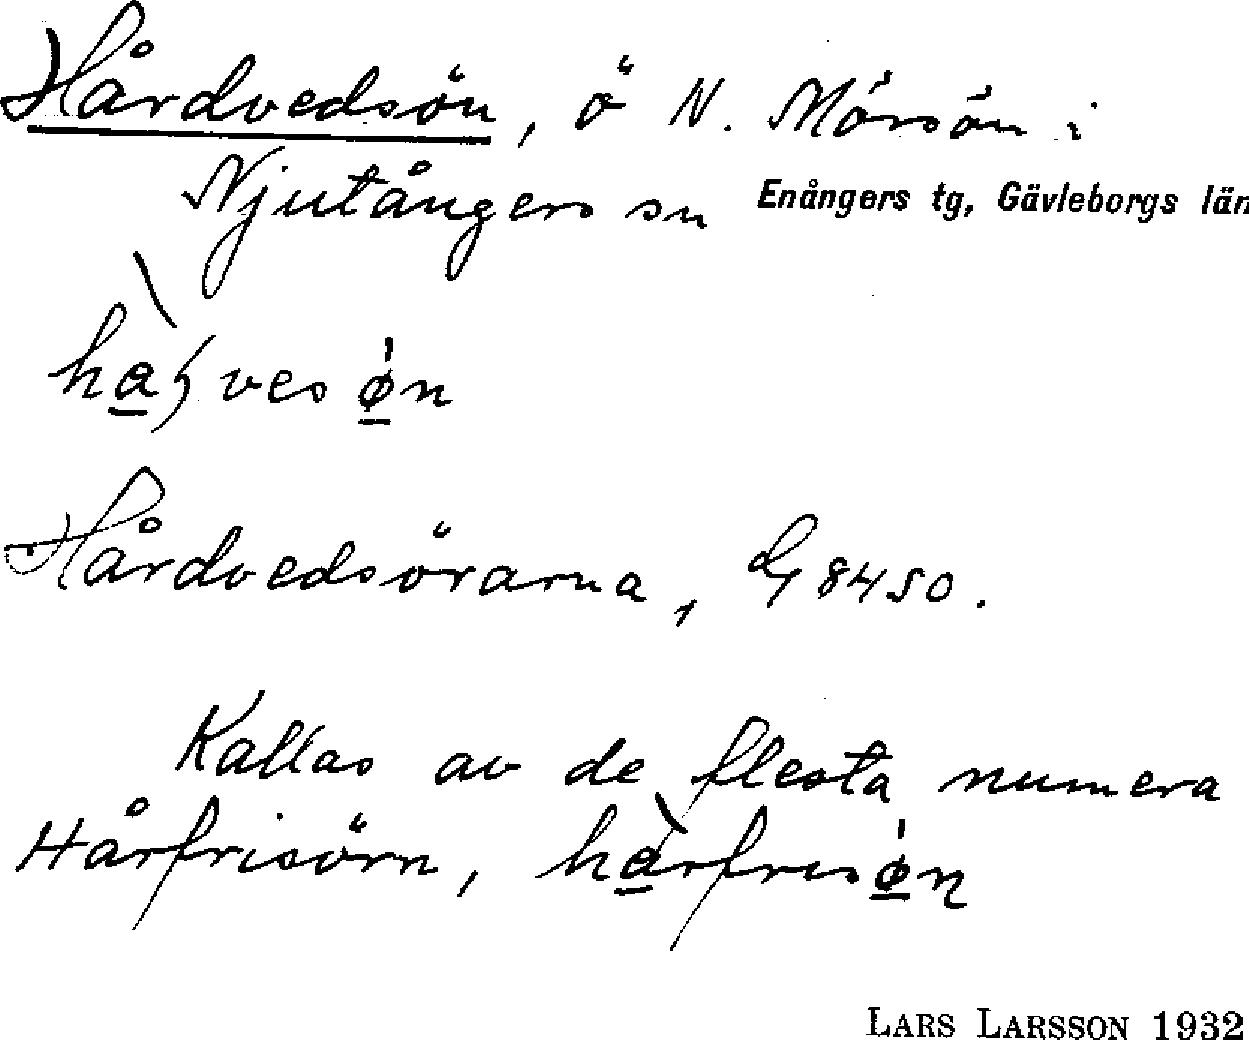 Hårdvedsön, ö N. Mörsön i
Njutångers sn Enångers tg, Gävleborgs län
Hårdvedsörarna, G 8450.
Kallas av de flesta numera
Hårfrisörn, hàrfrisǿn
LARS LARSSON 1932